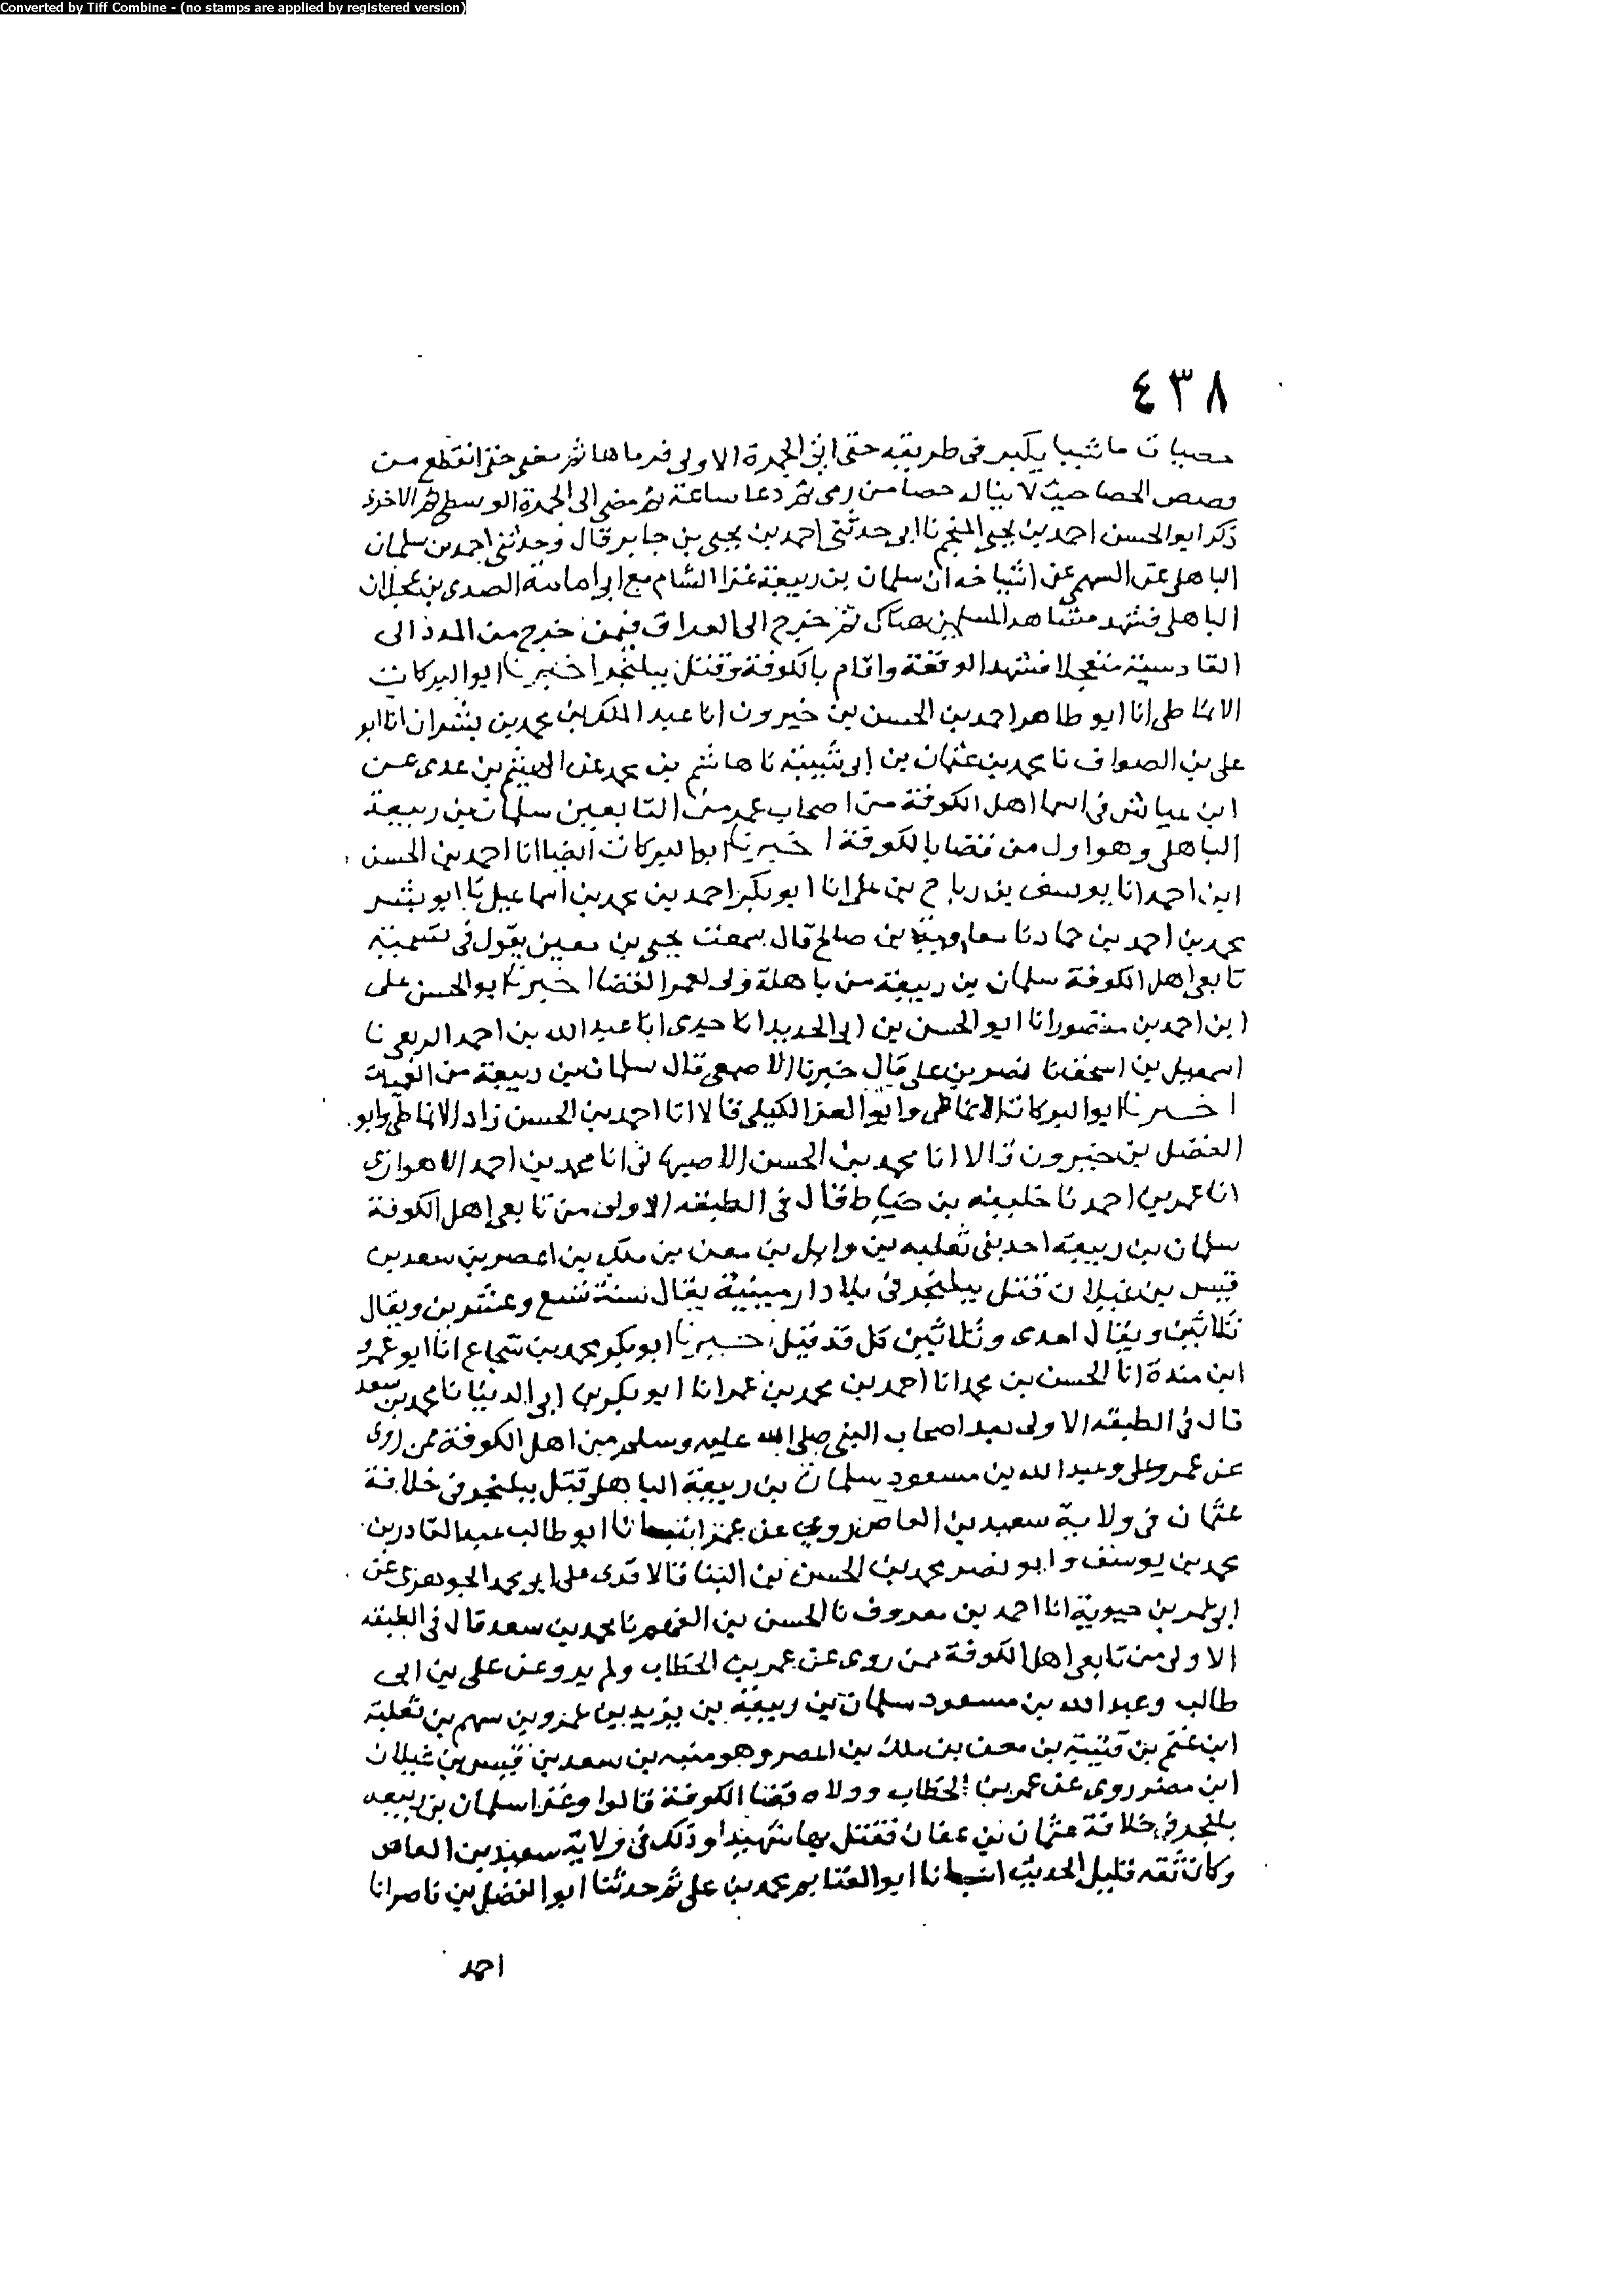 Converted by Tiff Combine - (no stamps are applied by registered version)
٤٣٨
حصيات ماشيا يكبر فى طريقه حتى اتى الجمرة الاولى فرماها ثم مضى حتى انقطع من
الحصا حيث لا يناله حصا من رمى ثم دعا ساعة ثم مضى الى الجمرة الوسطى ثم الاخرى
ذكر ابو الحسن احمد بن يحيى المنجم نا ابى حدثنى احمد بن يحيى بن جابر قال وحدثنى احمد بن سلمان
الباهلى عن السهمى عن اشياخه ان سلمان بن ربيعة غزا الشام مع ابى امامة الصدى بن عجلان
الباهلى فشهد مشاهد المسلمين هناك ثم خرج الى العراق فيمن خرج من المدد الى
القادسية متعجلا فشهد الوقعة واقام بالكوفة وقتل ببلنجر اخبرنا ابو البركات
الانماطى انا ابو طاهر احمد بن الحسن بن خيرون انا عبد الملك بن محمد بن بشران انا ابو
على بن الصواف نا محمد بن عثمان بن ابى شيبة نا هاشم بن محمد عن الهيثم بن عدى عن
ابن عياش فى اسما اهل الكوفة من اصحاب عمر من التابعين سلمان بن ربيعة
الباهلى وهو اول من قضا بالكوفة اخبرنا ابو البركات ايضا انا احمد بن الحسن
ابن احمد انا يوسف بن رباح بن على انا ابو بكر احمد بن محمد بن اسماعيل نا ابو بشر
محمد بن احمد بن حماد نا معاوية بن صالح قال سمعت يحيى بن معين يقول فى تسمية
تابعى اهل الكوفة سلمان بن ربيعة من باهلة ولى لعمر القضا اخبرنا ابو الحسن على
ابن احمد بن منصور انا ابو الحسن بن ابى الحديد انا جدى انا عبد الله بن احمد الربعى نا
اسمعيل بن اسحق نا نصر بن على قال خبرنا الاصمعى قال سلمان بن ربيعة من
اخبرنا ابو البركات الانماطى وابو العز الكيلى قالا انا احمد بن الحسن زاد الانماطى وابو
الفضل بن خيرون قالا انا محمد بن الحسن الاصبهانى انا محمد بن احمد الاهوازى
انا عمر بن احمد نا خليفه بن خياط قال فى الطبقه الاولى من تابعى اهل الكوفة
سلمان بن ربيعة احد بنى ثعلبه بن وايل بن معن بن ملك بن اعصر بن سعد بن
قيس بن غيلان قتل ببلنجر فى بلاد ارمينية يقال سنة تسع وعشرين ويقال
ثلاثين ويقال احدى وثلاثين كل قد قيل اخبرنا ابو بكر محمد بن شجاع انا ابو عمرو
ابن مندة انا الحسن بن محمد انا احمد بن محمد بن عمر انا ابو بكر بن ابى الدنيا نا محمد بن سعد
قال فى الطبقه الاولى بعد اصحاب النبى صلى الله عليه وسلم من اهل الكوفة ممن روى
عن عمر وعلى وعبد الله بن مسعود سلمان بن ربيعة الباهلى قتل ببلنجر فى خلافة
عثمان فى ولاية سعيد بن العاص روى عن عمر انبانا ابو طالب عبد القادر بن
محمد بن يوسف وابو نصر محمد بن الحسن بن البنا قالا قرى على ابو محمد الجوهرى عن
ابى عمر بن حيوية انا احمد بن معروف نا الحسن بن الفهم نا محمد بن سعد قال فى الطبقه
الاولى من تابعى اهل الكوفة ممن روى عن عمر بن الخطاب ولم يرو عن على بن ابى
طالب وعبد الله بن مسعود سلمان بن ربيعة بن يزيد بن عمرو بن سهم بن ثعلبة
ابن غنم بن قتيبة بن معن بن ملك بن اعصر وهو منبه بن سعد بن قيس بن غيلان
ابن مضر روى عن عمر بن الخطاب وولاه قضا الكوفة قالوا وغزا سلمان بن ربيعه
بلنجر فى خلافة عثمان بن عفان فقتل بها شهيدا وذلك فى ولاية سعيد بن العاص
وكان ثقه قليل الحديث انبانا ابو الغنايم محمد بن على ثم حدثنا ابو الفضل بن ناصر انا
احمد